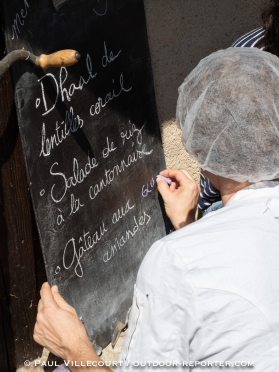 men
° Dhaal de
lentilles corail
° Salade de riz
à la cantonnaise
° Gâteau aux co
amandes
© PAUL VILLECOURT / OUTDOOR-REPORTER.COM